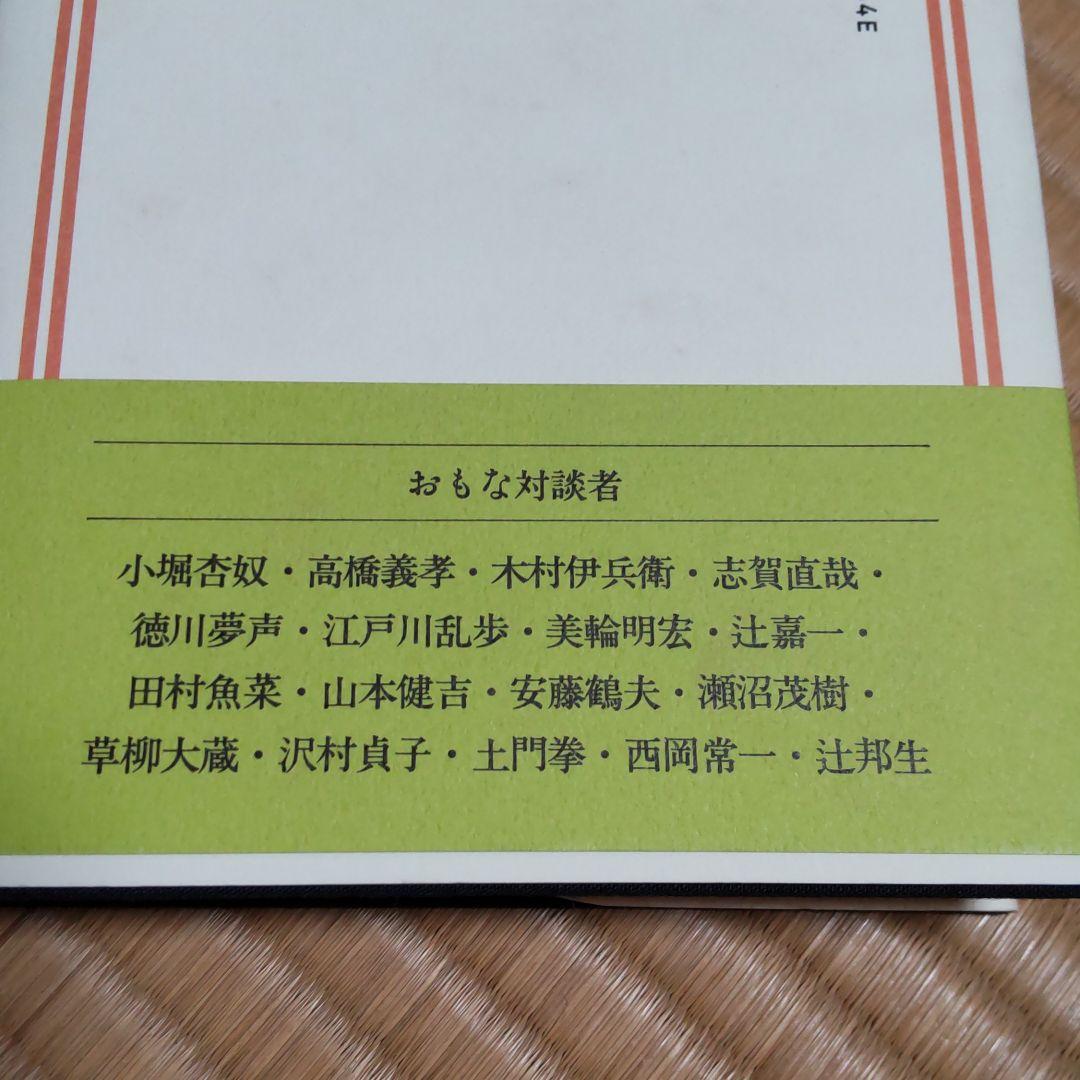 4E
おもな対談者
小堀杏奴・高橋義孝・木村伊兵衛・志賀直哉・
徳川夢声・江戸川乱歩・美輪明宏・辻嘉一・
田村魚菜・山本健吉・安藤鶴夫・瀬沼茂樹・
草柳大蔵・沢村貞子・土門拳・西岡常一・辻邦生